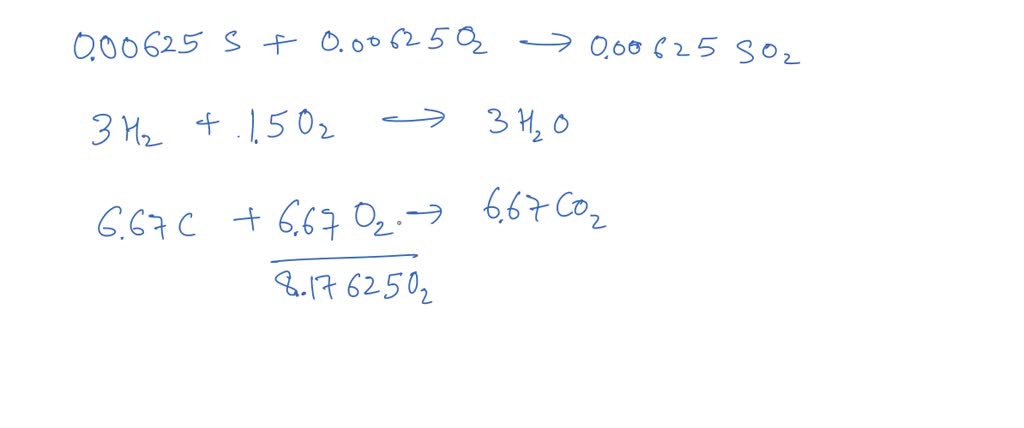 0.00625 S + 0.00625 O₂ → 0.00625 SO₂
3 H₂ + 1.5 O₂ → 3 H₂O
6.67 C + 6.67 O₂ → 6.67 CO₂
8.17625 O₂